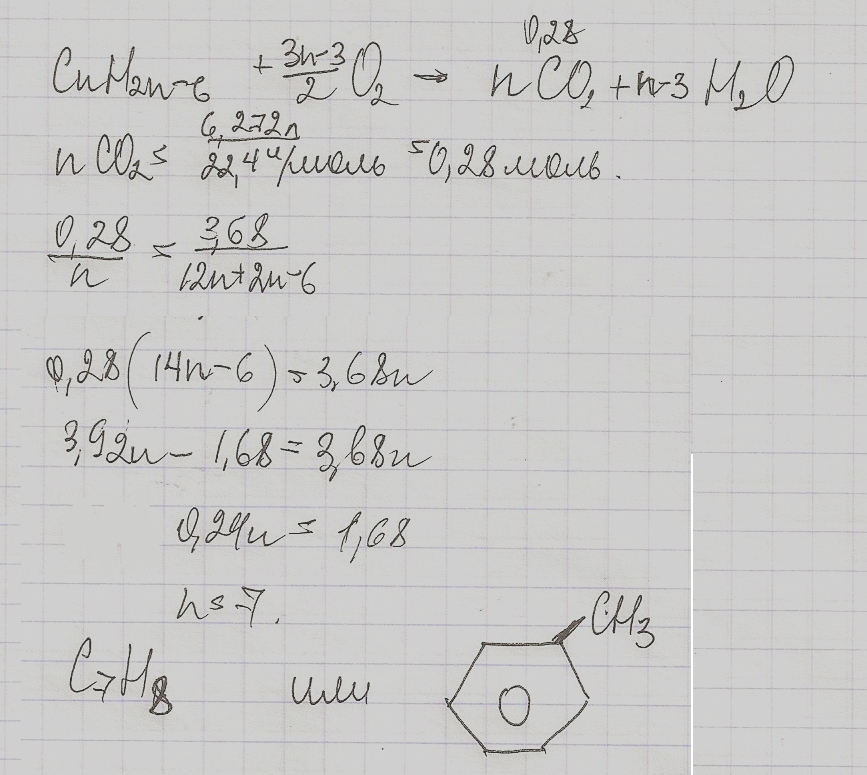 0,28
CnH2n-6 + 3n-3/2 O2 → nCO2 + n-3 H2O
nCO2 = 6,272л/22,4л/моль = 0,28 моль.
0,28/n = 3,68/12n+2n-6
0,28(14n-6) = 3,68n
3,92n - 1,68 = 3,68n
0,24n = 1,68
n = 7.
CH3
C7H8 или